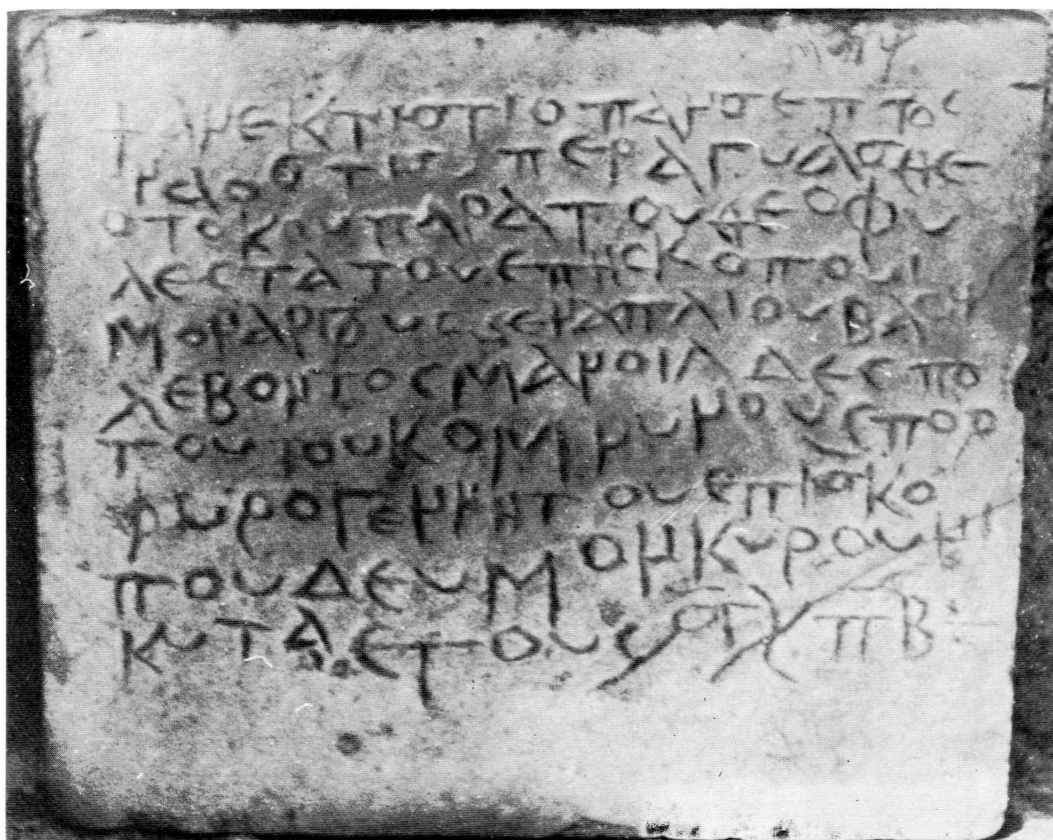 + ΑΝΕΚΤΙΣΤΙ Ο ΠΑΝΣΕΠΤΟΣ
ΝΕΙΟΣ ΤΙΣ ΥΠΕΡΑΓΥΑΣ ΘΕ
ΟΤΟΚΟΥ ΠΑΡΑ ΤΟΥ ΘΕΟΦΥ
ΛΕΣΤΑΤΟΥ ΕΠΗΣΚΟΠΟΥ Ι
ΜΟΝ ΑΡΓΟΥΣ ϗ ΑΝΑΠΛΙΟΥ ΒΑΣΗ
ΛΕΒΟΝΤΟΣ ΜΑΝΟΙΛ ΔΕΣΠΟ
ΤΟΥ ΤΟΥ ΚΟΜΝΥΝΟΥ ϗ ΠΟΡ
ΦΥΡΟΓΕΝΝΗΤΟΥ ΕΠΙΣΚΟ
ΠΟΥ ΔΕ ΥΜΟΝ ΚΥΡΟΥ ΝΗ
ΚΥΤΑ ΕΤΟΥΣ ϚΧΠΒ